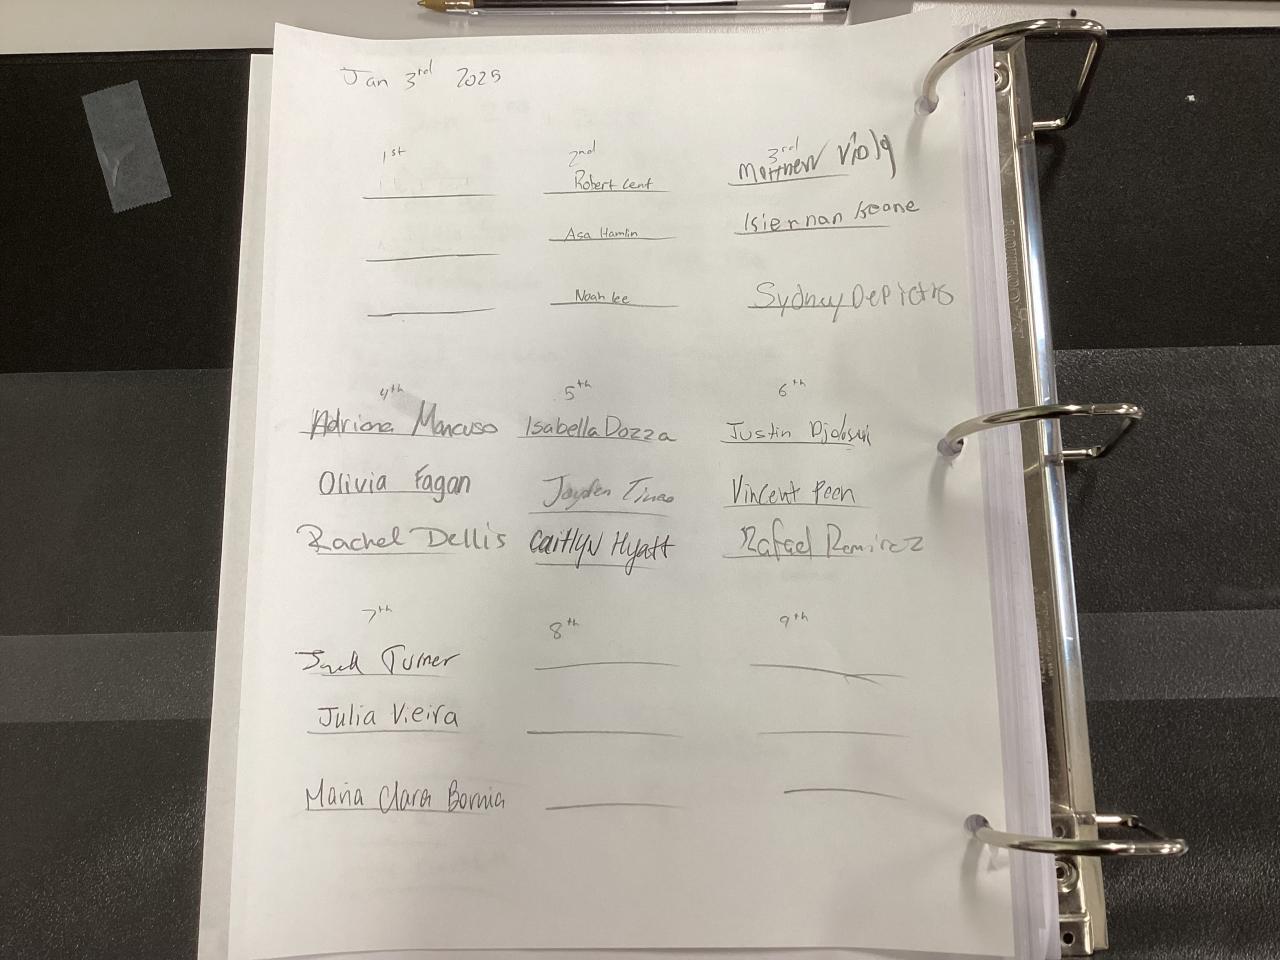 Jan 3rd 2025
1st
2nd
3rd
Robert
Matthew Viola
Asa Hamlin
Kiernan Keane
Noah Lee
Sydney
4th
5th
6th
Adriana Mancuso
Isabella Dozza
Justin
Olivia Fagan
Jayden
Vincent
Rachel Dellis
Caitlyn Hyatt
Rafael Ramirez
7th
8th
9th
Jack Turner
Julia Vieira
Maria Clara